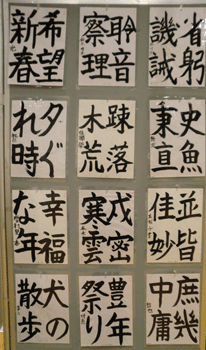 省躬
譏誡
史魚
秉直
並皆
佳妙
庶幾
中庸
聆音
察理
踈落
木荒
戊密
寒雲
豊年
祭り
希望
新春
夕ぐ
れ時
幸福
な年
犬の
散歩